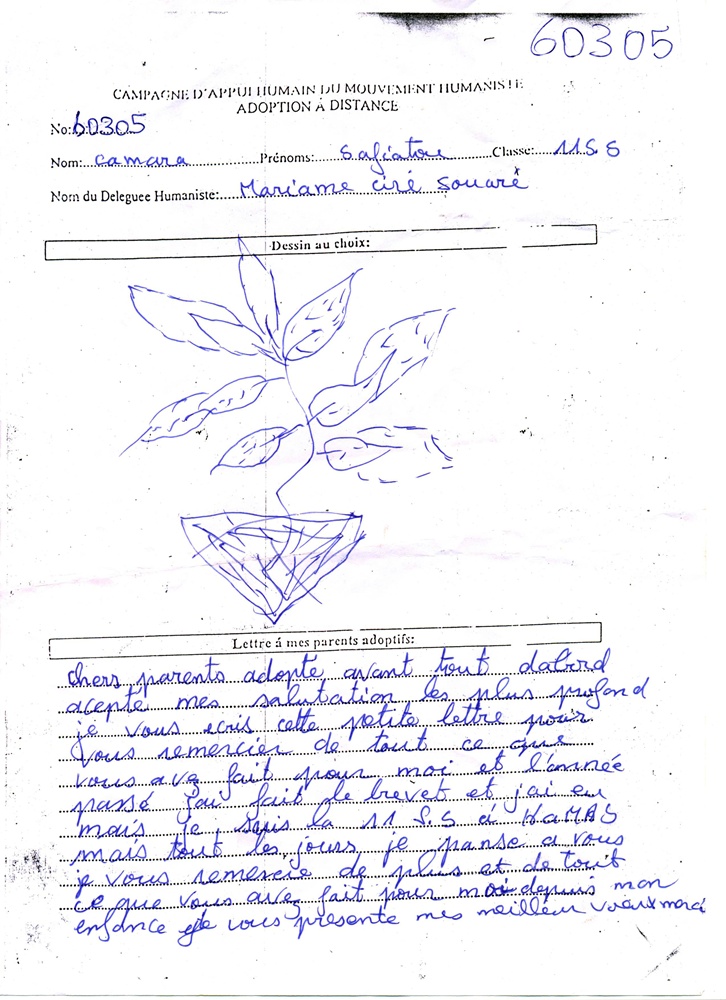 60305
CAMPAGNE D'APPUI HUMAIN DU MOUVEMENT HUMANISTE
ADOPTION À DISTANCE
No: 60305
Nom: camara Prénoms: Safiatou Classe: 11S.S
Nom du Deleguee Humaniste: Mariame ciré souaré
Dessin au choix:
Lettre á mes parents adoptifs:
chers parents adopte avant tout dabord
acepte mes salutation les plus profond
je vous ecris cette petite lettre pour
vous remercier de tout ce que
vous avez fait pour moi et l'année
passé j'ai fait le brevet et j'ai eu
mais je suis la 11 S.S á
mais tout les jours je panse a vous
je vous remercie de plus et de tout
ce que vous avez fait pour moi depuis mon
enfance je vous presente mes meilleur vœux merci